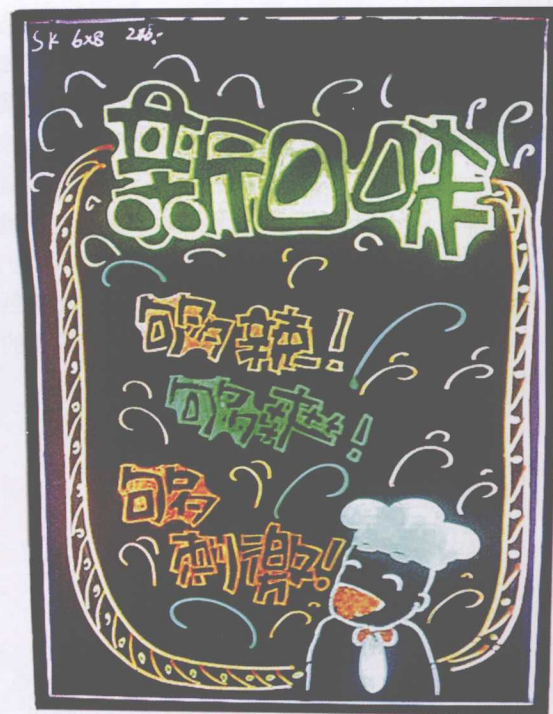 SK 6x8
新口味
够辣!
够爽!
够
刺激!